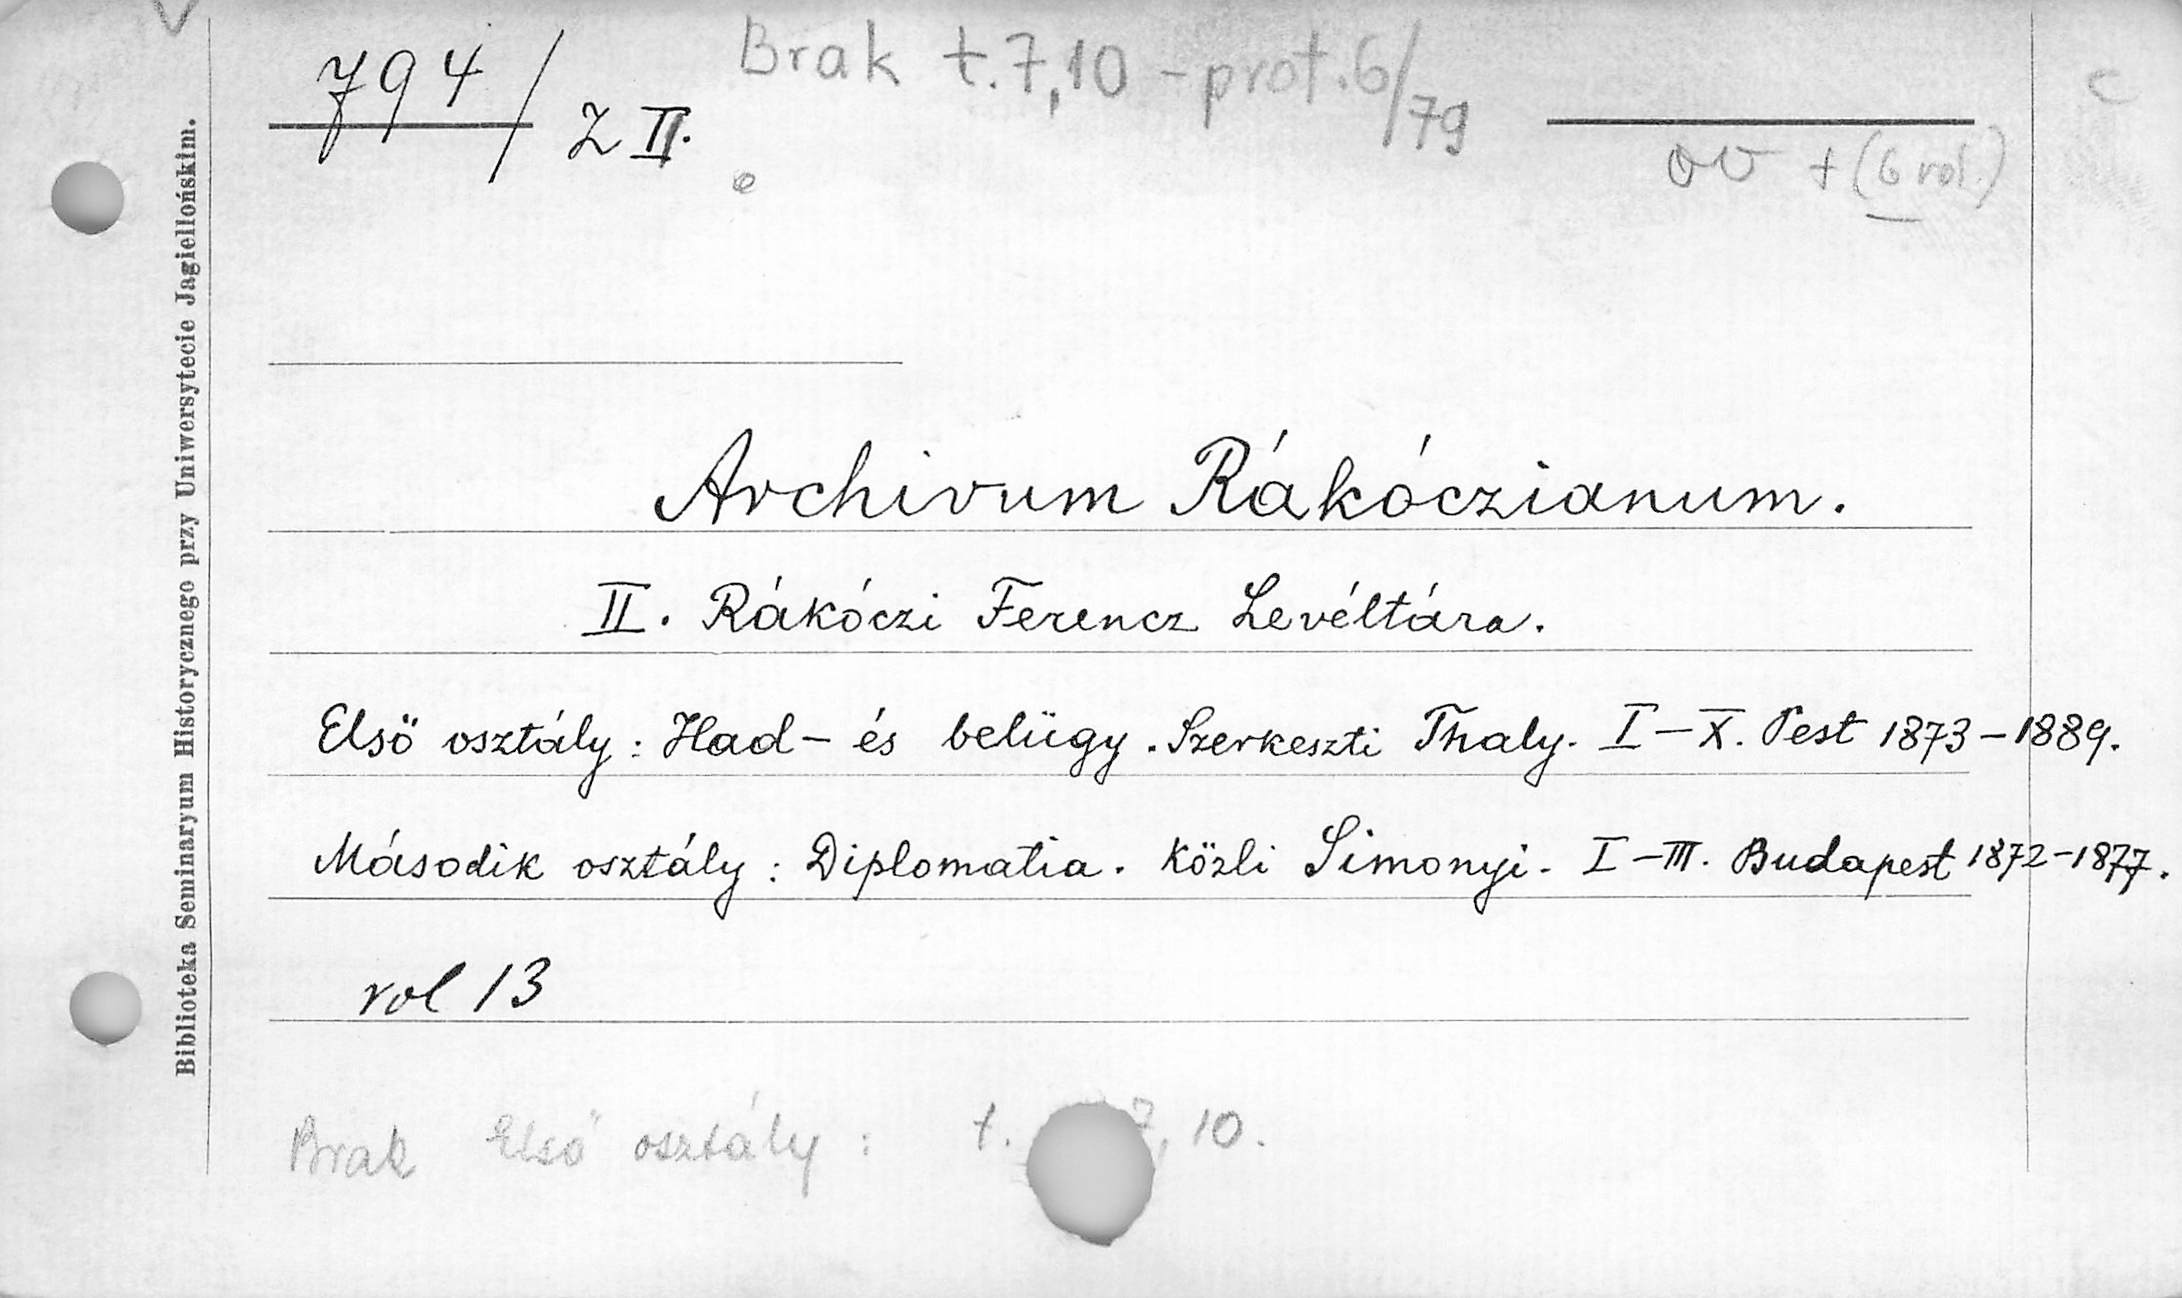 Brak t. 7, 10 - prot. 6/79
794/ Z II.
ov + (6 vol.)
c
Archivum Rákóczianum.
II. Rákóczi Ferencz Levéltára.
Elsö osztály: Had- és belügy. Szerkeszti Thaly. I-X. Pest 1873-1889.
Második osztály: Diplomatia. Közli Simonyi. I-III. Budapest 1872-1877.
vol 13
Brak Elsö osztály: t. 7, 10.
Biblioteka Seminaryum Historycznego przy Uniwersytecie Jagiellońskim.